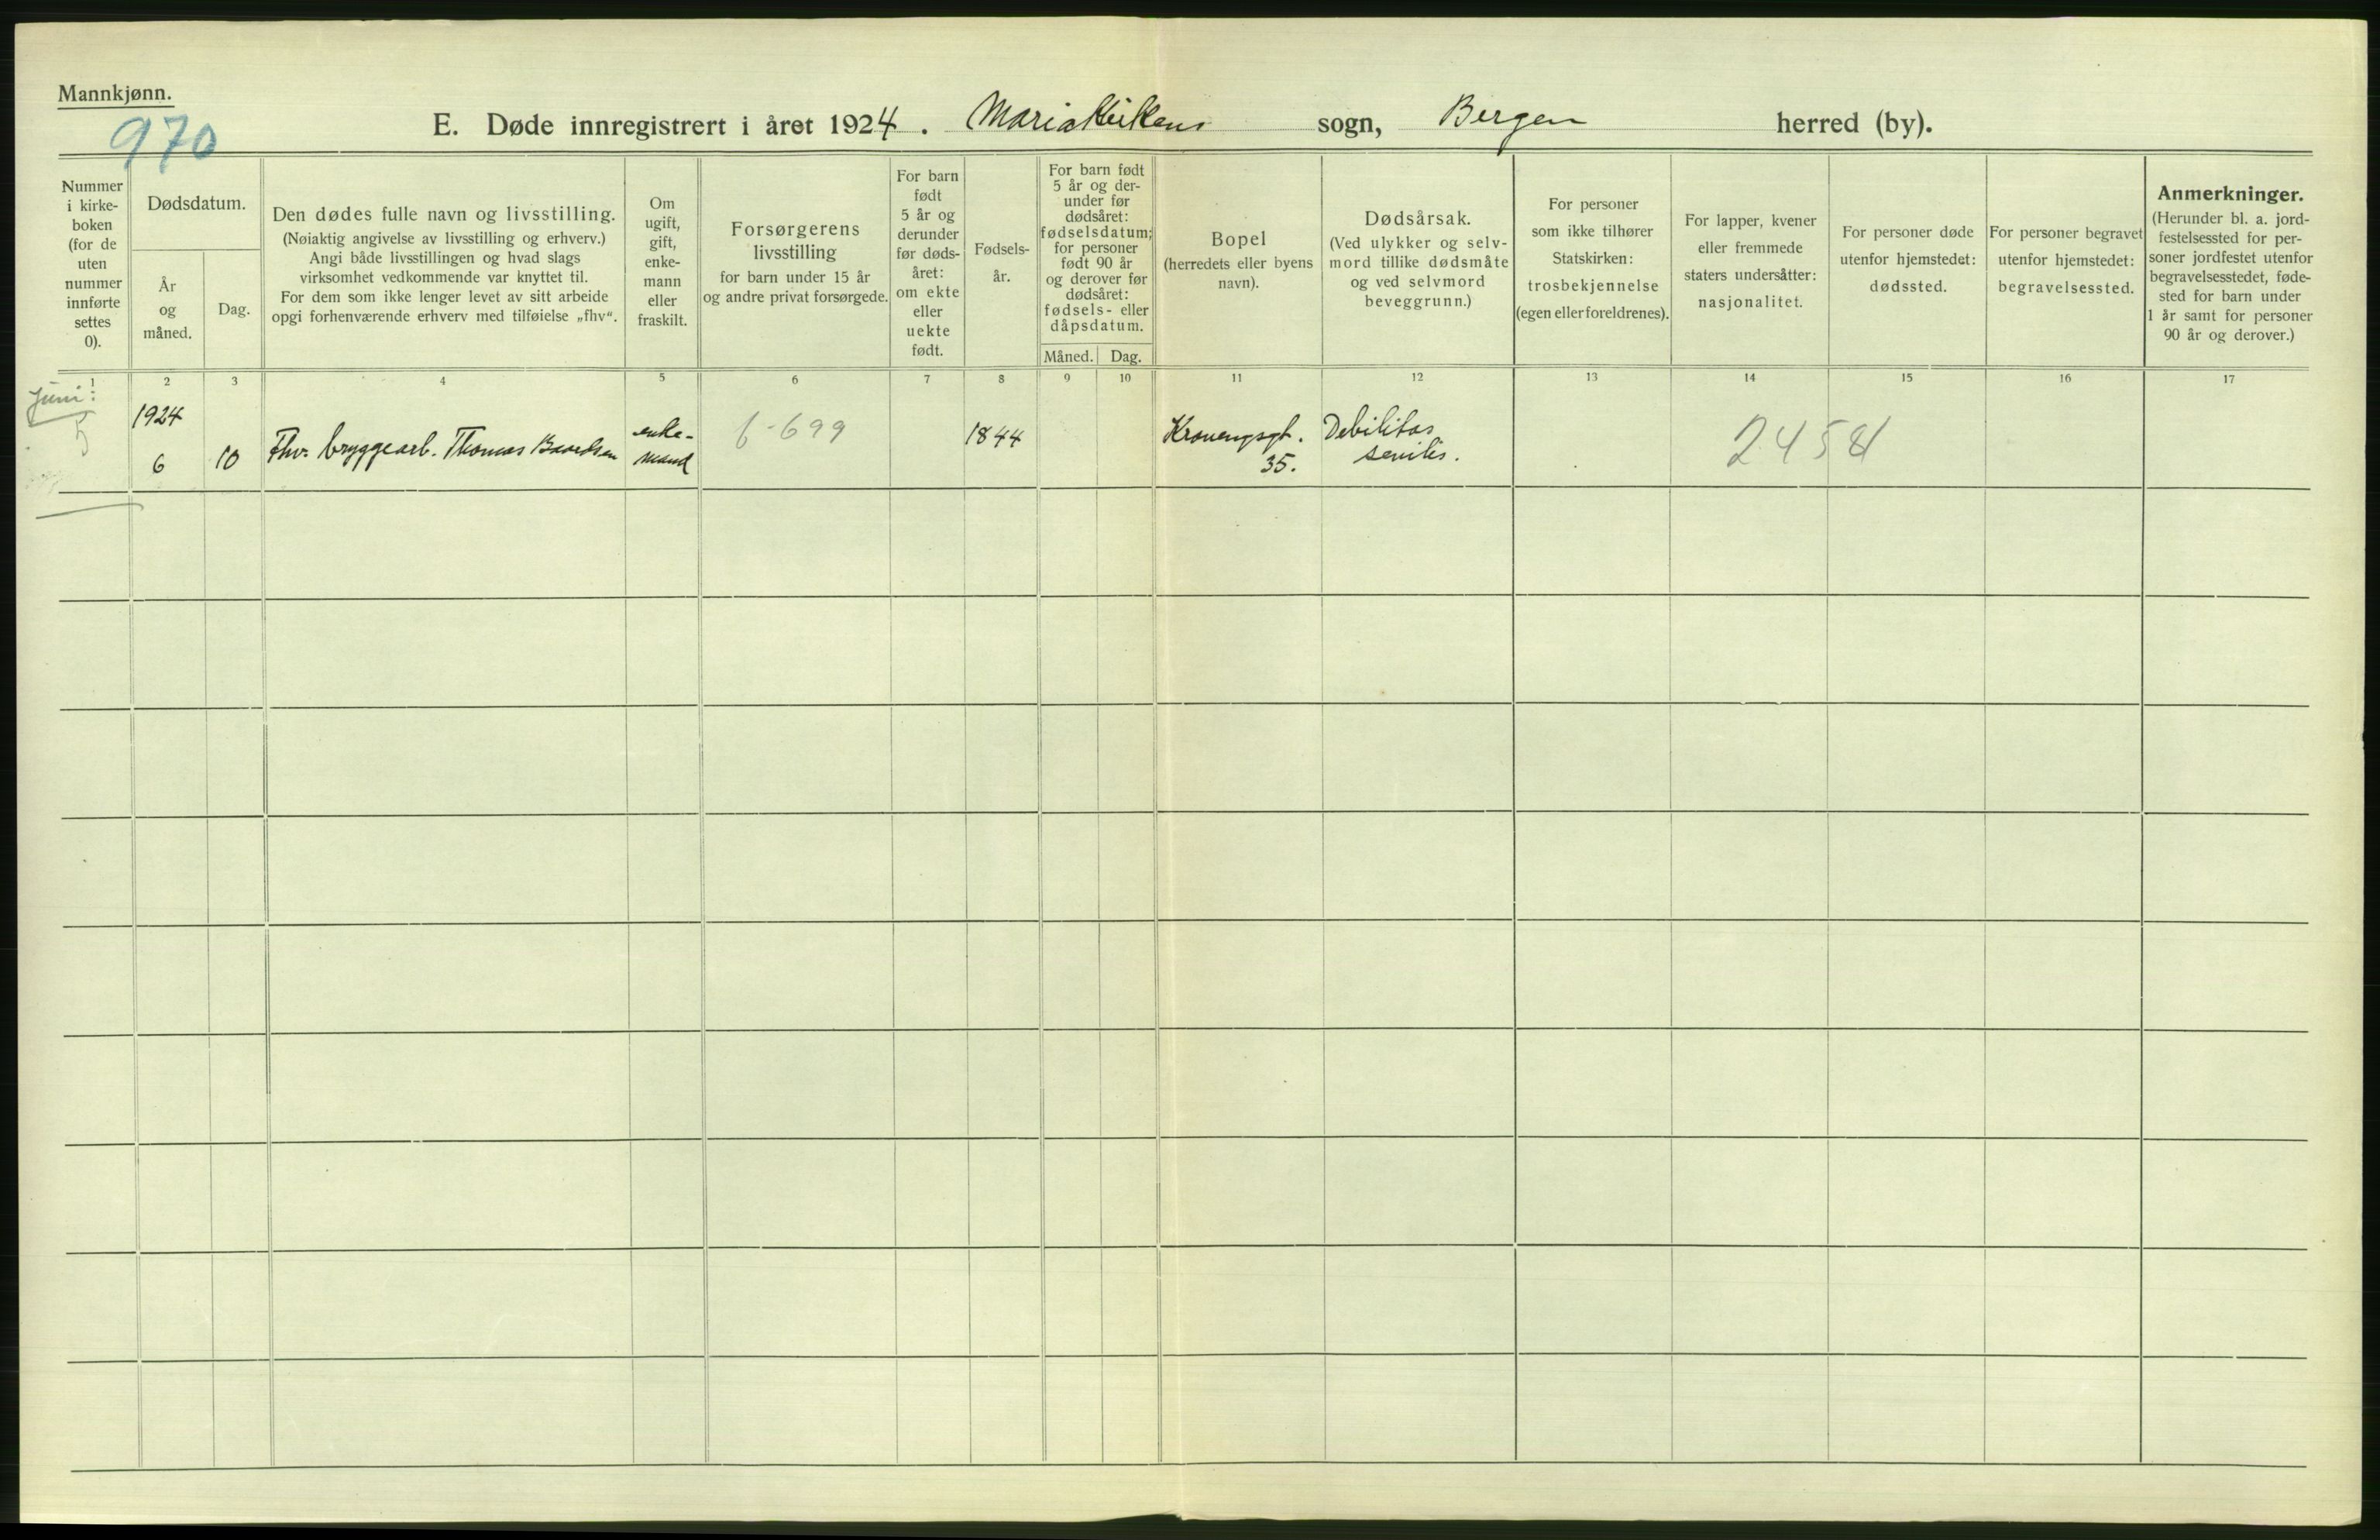 Mannkjønn.
970
E. Døde innregistrert i året 1924. Mariakirkens sogn, Bergen herred (by).
Nummer
i kirke-
boken
(for de
uten
nummer
innførte
settes
0).
Dødsdatum.
År
og
måned.
Dag.
Den dødes fulle navn og livsstilling.
(Nøiaktig angivelse av livsstilling og erhverv.)
Angi både livsstillingen og hvad slags
virksomhet vedkommende var knyttet til.
For dem som ikke lenger levet av sitt arbeide
opgi forhenværende erhverv med tilføielse „fhv“.
Om
ugift,
gift,
enke-
mann
eller
fraskilt.
Forsørgerens
livsstilling
for barn under 15 år
og andre privat forsørgede.
For barn
født
5 år og
derunder
før døds-
året:
om ekte
eller
uekte
født.
Fødsels-
år.
For barn født
5 år og der-
under før
dødsåret:
fødselsdatum;
for personer
født 90 år
og derover før
dødsåret:
fødsels- eller
dåpsdatum.
Måned. Dag.
Bopel
(herredets eller byens
navn).
Dødsårsak.
(Ved ulykker og selv-
mord tillike dødsmåte
og ved selvmord
beveggrunn.)
For personer
som ikke tilhører
Statskirken:
trosbekjennelse
(egen eller foreldrenes).
For lapper, kvener
eller fremmede
staters undersåtter:
nasjonalitet.
For personer døde
utenfor hjemstedet:
dødssted.
For personer begravet
utenfor hjemstedet:
begravelsessted.
Anmerkninger.
(Herunder bl. a. jord-
festelsessted for per-
soner jordfestet utenfor
begravelsesstedet, føde-
sted for barn under
1 år samt for personer
90 år og derover.)
1 2 3 4 5 6 7 8 9 10 11 12 13 14 15 16 17
Juni:
5
1924
6 10 Fhv. bryggearb. Thomas Baardsen
enke-
mand
6-699
1844
Kronengsgt.
35.
Debilitas
senilis.
2458